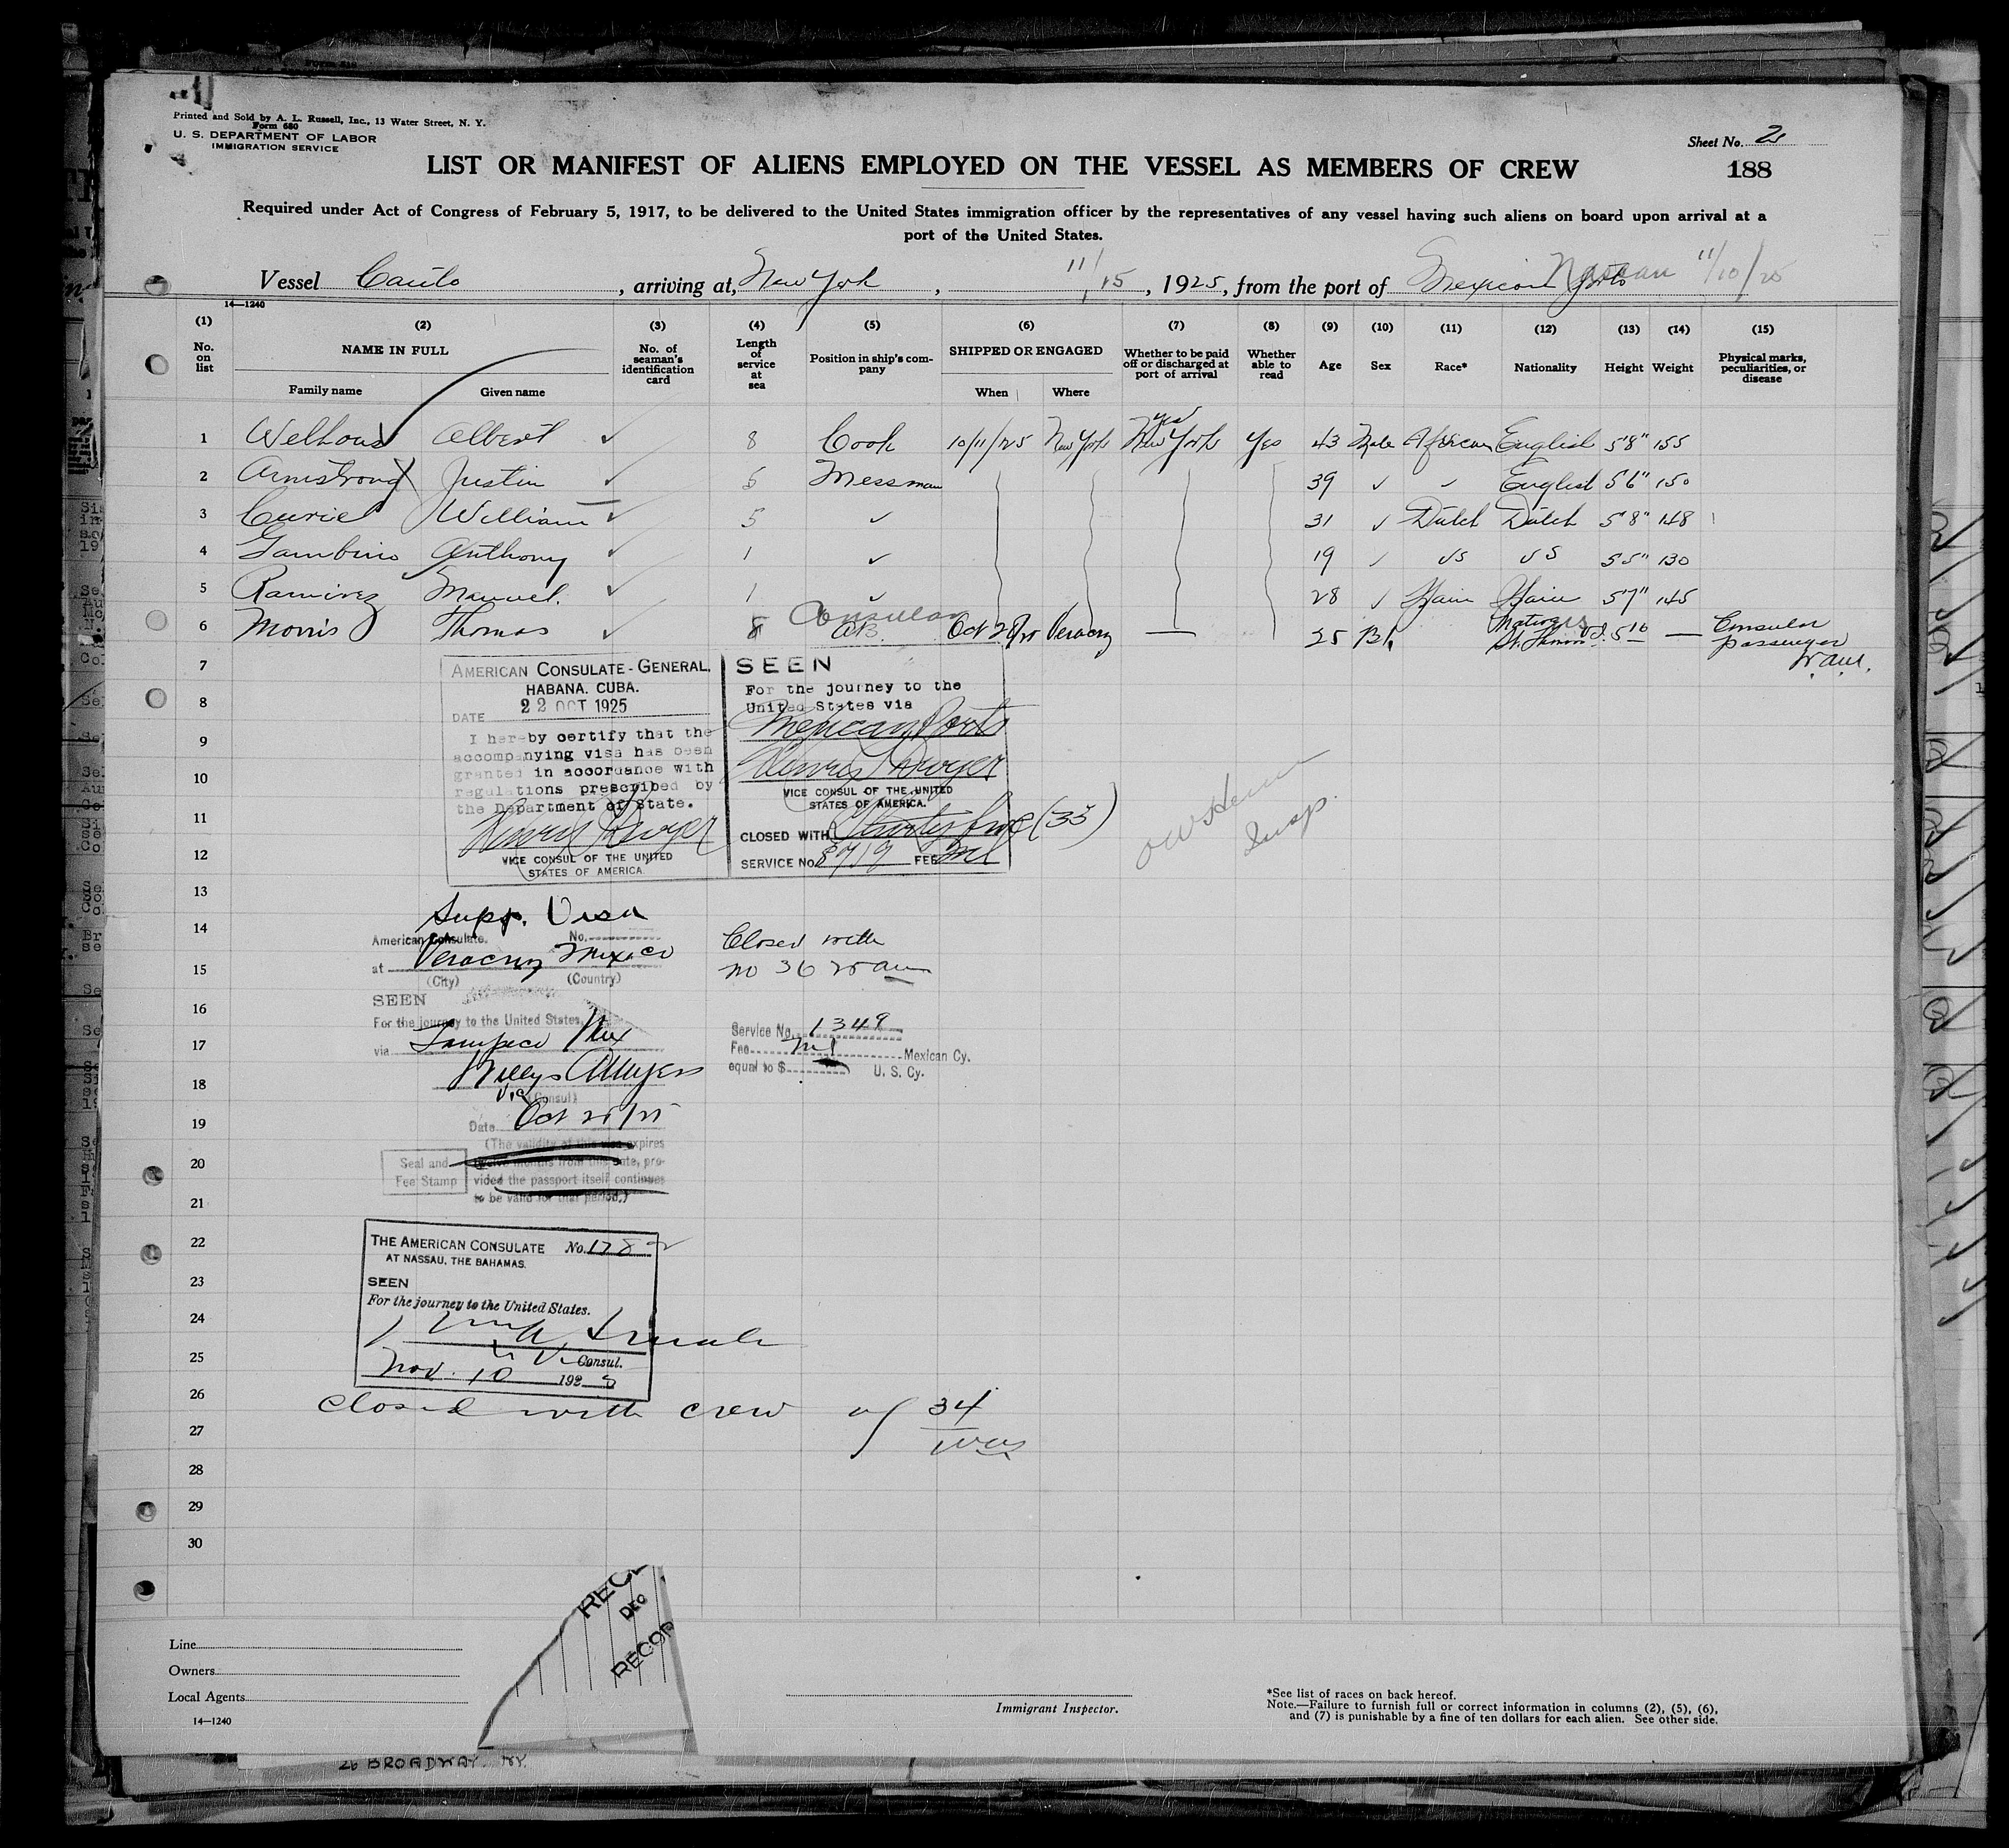 Printed and Sold by A. L. Russell, Inc., 13 Water Street, N. Y.
Form 680
U. S. DEPARTMENT OF LABOR
IMMIGRATION SERVICE
Sheet No. 2
LIST OR MANIFEST OF ALIENS EMPLOYED ON THE VESSEL AS MEMBERS OF CREW
188
Required under Act of Congress of February 5, 1917, to be delivered to the United States immigration officer by the representatives of any vessel having such aliens on board upon arrival at a
port of the United States.
Vessel Cauto, arriving at, New York, 11/15, 1925, from the port of Mexican Ports Nassau 11/10/25
14—1240
(1) (2) (3) (4) (5) (6) (7) (8) (9) (10) (11) (12) (13) (14) (15)
No. on list NAME IN FULL Family name Given name No. of seaman's identification card Length of service at sea Position in ship's company SHIPPED OR ENGAGED When Where Whether to be paid off or discharged at port of arrival Whether able to read Age Sex Race* Nationality Height Weight Physical marks, peculiarities, or disease
yes
1 Albert ✓ 8 Cook 10/11/25 New York New York Yes 43 Male African English 5'8" 155
2 Armstrong Justin ✓ 5 Messman 39 ✓ ✓ English 5'6" 150
3 Curiel William ✓ 5 ✓ 31 ✓ Dutch Dutch 5'8" 148
4 Gambino Anthony ✓ 1 ✓ 19 ✓ US US 5'5" 130
5 Ramirez Manuel. ✓ 1 ✓ 28 ✓ Spain Spain 5'7" 145
Consular
6 Morris Thomas ✓ 8 AB. Oct Veracruz — 25 Bl. Native St. Thomas 5 10 — Consular passenger
7
8
9
10
11
12
13
14
15
16
17
18
19
20
21
22
23
24
25
26
27
28
29
30
AMERICAN CONSULATE-GENERAL.
HABANA. CUBA.
22 OCT 1925
DATE
I hereby certify that the
accompanying visa has been
granted in accordance with
regulations prescribed by
the Department of State.
VICE CONSUL OF THE UNITED
STATES OF AMERICA.
SEEN
For the journey to the
United States via
Mexican Ports
VICE CONSUL OF THE UNITED
STATES OF AMERICA.
CLOSED WITH Thirty five (35)
SERVICE No. 8719 FEE Nil
Insp.
Supp. Visa
American Consulate. No.
at Veracruz Mexico
(City) (Country)
Closed with
no 36
SEEN
For the journey to the United States,
via Tampico Mex
(Consul)
Date Oct
Service No. 1349
Fee Nil Mexican Cy.
equal to $ U. S. Cy.
(The validity of this visa expires
twelve months from this date, pro-
vided the passport itself continues
to be valid for that period.)
Seal and
Fee Stamp
THE AMERICAN CONSULATE No. 1782
AT NASSAU, THE BAHAMAS.
SEEN
For the journey to the United States.
Consul.
Nov. 10 192
closed with crew of 34
RECE
DEC
RECOR
Line
Owners
Local Agents
14—1240
Immigrant Inspector.
*See list of races on back hereof.
Note.—Failure to furnish full or correct information in columns (2), (5), (6),
and (7) is punishable by a fine of ten dollars for each alien. See other side.
26 BROADWAY. NY.